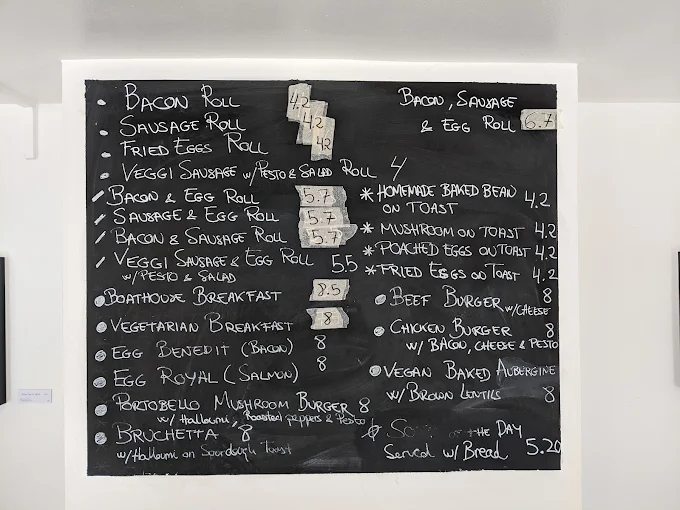 BACON ROLL 4.2
SAUSAGE ROLL 4.2
FRIED EGGS ROLL 4.2
VEGGI SAUSAGE w/PESTO & SALAD ROLL 4
BACON & EGG ROLL 5.7
SAUSAGE & EGG ROLL 5.7
BACON & SAUSAGE ROLL 5.7
VEGGI SAUSAGE & EGG ROLL 5.5
w/ PESTO & SALAD
BOATHOUSE BREAKFAST 8.5
VEGETARIAN BREAKFAST 8
EGG BENEDIT (BACON) 8
EGG ROYAL (SALMON) 8
PORTOBELLO MUSHROOM BURGER 8
w/ Halloumi, Roasted peppers & Pesto
BRUCHETTA 8
w/Halloumi on Sourdough Toast
BACON, SAUSAGE
& EGG ROLL 6.7
* HOMEMADE BAKED BEAN
ON TOAST 4.2
* MUSHROOM ON TOAST 4.2
* POACHED EGGS ON TOAST 4.2
* FRIED EGGS ON TOAST 4.2
BEEF BURGER 8
w/CHEESE
CHICKEN BURGER 8
w/ BACON, CHEESE & PESTO
VEGAN BAKED AUBERGINE
w/ BROWN LENTILS 8
THE DAY
Served w/ Bread 5.20